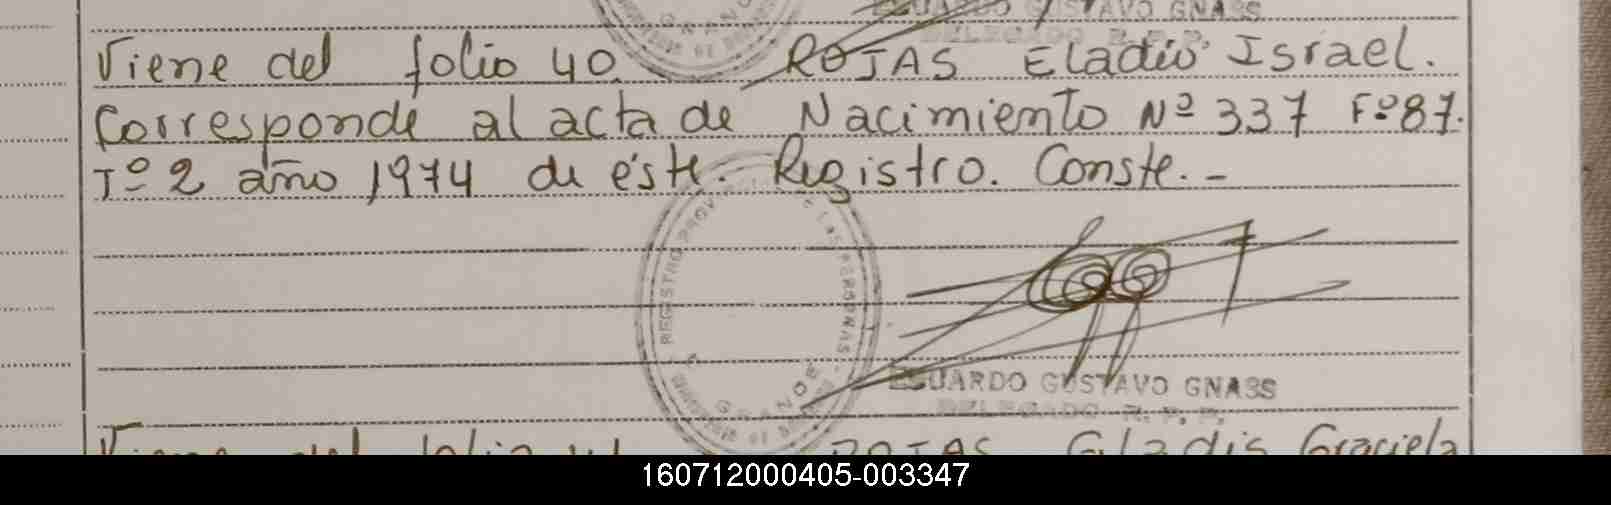 EDUARDO GUSTAVO GNASS
DELEGADO R.P.P.
Viene del folio 40. ROJAS Eladio Israel.
Corresponde al acta de Nacimiento Nº 337 Fº 87.
Tº 2 año 1974 de éste. Registro. Conste.-
REGISTRO PROV LAS PERSONAS - GRANDE
EDUARDO GUSTAVO GNASS
DELEGADO R.P.P.
Viene del folio 41 ROJAS Gladis Graciela
160712000405-003347